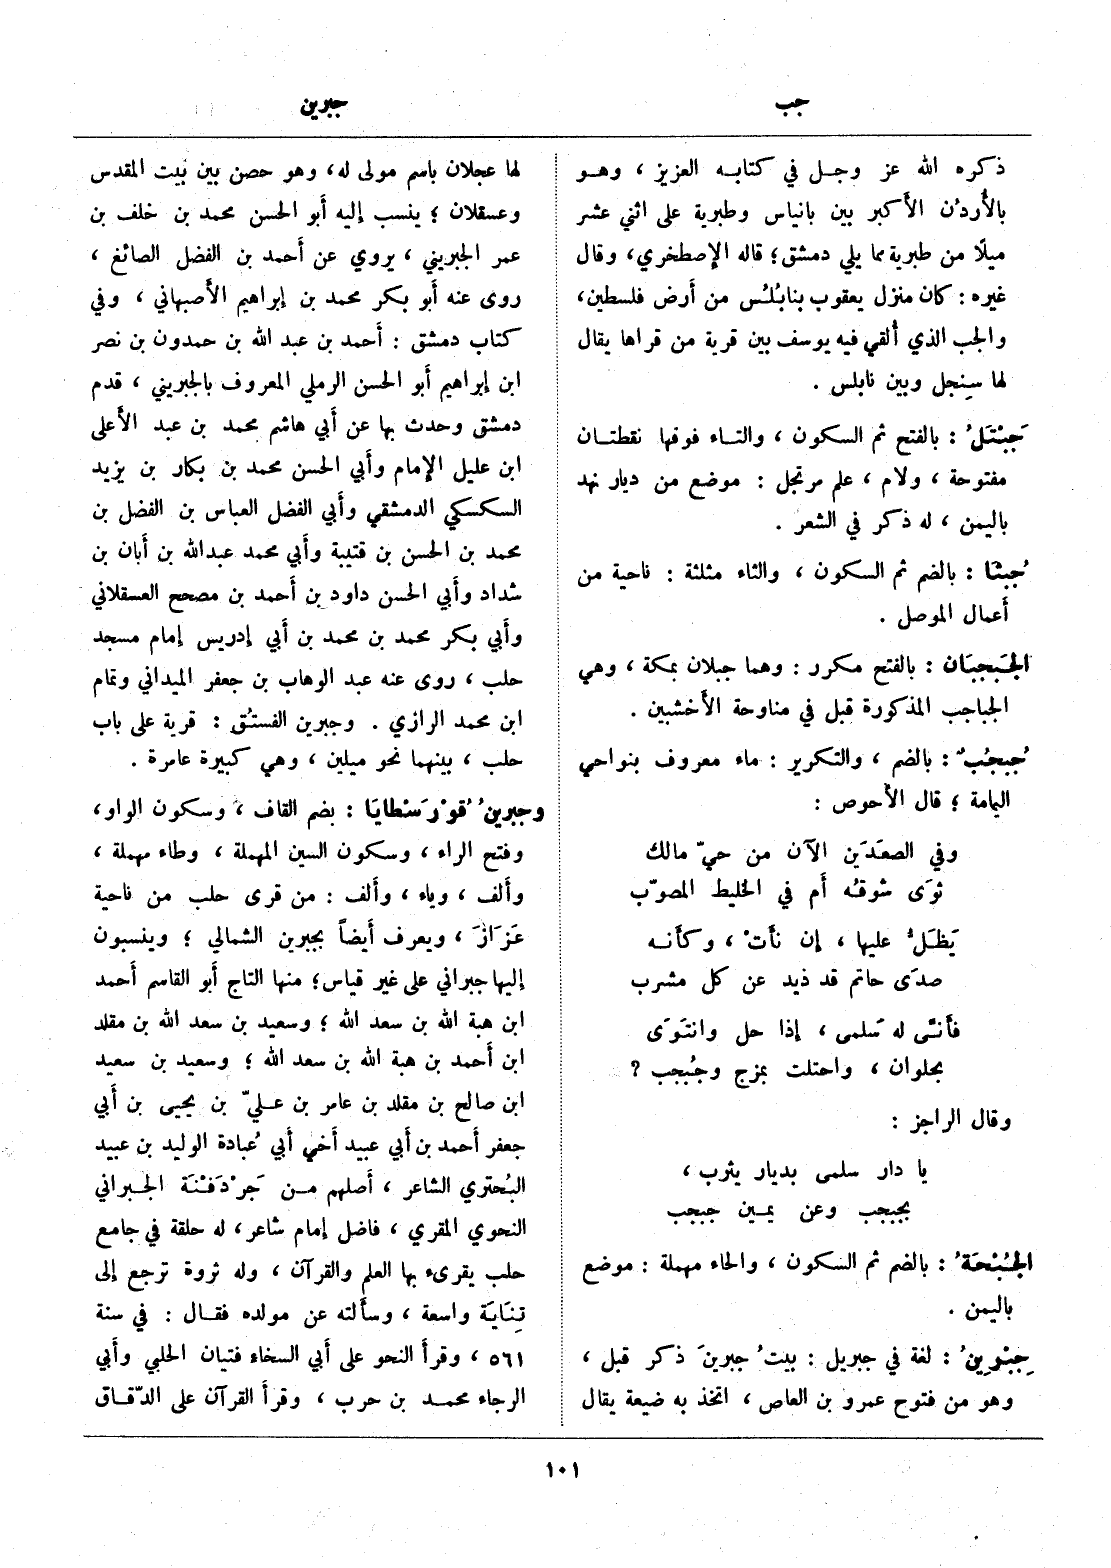 جب
جبرين
ذكره الله عز وجل في كتابه العزيز ، وهو
بالأردُن الأكبر بين بانياس وطبرية على اثني عشر
ميلًا من طبرية مما يلي دمشق؛ قاله الإصطخري، وقال
غيره : كان منزل يعقوب بنابُلُس من أرض فلسطين،
والجب الذي أُلقي فيه يوسف بين قرية من قراها يقال
لها سِنجل وبين نابلس .
جَبْتَلُ : بالفتح ثم السكون ، والتاء فوقها نقطتان
مفتوحة ، ولام ، علم مرتجل : موضع من ديار نهد
باليمن ، له ذكر في الشعر .
جُبثا : بالضم ثم السكون ، والثاء مثلثة : ناحية من
أعمال الموصل .
الجَبجبَان : بالفتح مكرر : وهما جبلان بمكة ، وهي
الجباجب المذكورة قبل في مناوحة الأخشبين .
جُبجُبٌ : بالضم ، والتكرير : ماء معروف بنواحي
اليامة ؛ قال الأحوص :
وفي الصعَدَين الآن من حيّ مالك
ثوَى شوقهُ أم في الخليط المصوّب
يَظَلُّ عليها ، إن نأتْ ، وكأنه
صدَى حائم قد ذيد عن كل مشرب
فأنَّى له سَلمى ، إذا حل وانتَوَى
بحلوان ، واحتلت بمزج وجُبجب ؟
وقال الراجز :
يا دار سلمى بديار يثرب ،
بجبجب وعن يمين جبجب
الجُبْحَةُ : بالضم ثم السكون ، والحاء مهملة : موضع
باليمن .
جِبْرِينُ : لغة في جبريل : بيتُ جبرينَ ذكر قبل ،
وهو من فتوح عمرو بن العاص ، اتخذ به ضيعة يقال
لها عجلان باسم مولى له، وهو حصن بين بيت المقدس
وعسقلان ؛ ينسب إليه أبو الحسن محمد بن خلف بن
عمر الجبريني ، يروي عن أحمد بن الفضل الصائغ ،
روى عنه أبو بكر محمد بن إبراهيم الأصبهاني ، وفي
كتاب دمشق : أحمد بن عبد الله بن حمدون بن نصر
ابن إبراهيم أبو الحسن الرملي المعروف بالجبريني ، قدم
دمشق وحدث بها عن أبي هاشم محمد بن عبد الأعلى
ابن عليل الإمام وأبي الحسن محمد بن بكار بن يزيد
السكسكي الدمشقي وأبي الفضل العباس بن الفضل بن
محمد بن الحسن بن قتيبة وأبي محمد عبدالله بن أبان بن
شداد وأبي الحسن داود بن أحمد بن مصحح العسقلاني
وأبي بكر محمد بن محمد بن أبي إدريس إمام مسجد
حلب ، روى عنه عبد الوهاب بن جعفر الميداني وتمام
ابن محمد الرازي . وجبرين الفستُق : قرية على باب
حلب ، بينهما نحو ميلين ، وهي كبيرة عامرة .
وجبرينُ قُورَسْطايَا : بضم القاف ، وسكون الواو ،
وفتح الراء ، وسكون السين المهملة ، وطاء مهملة ،
وألف ، وياء ، وألف : من قرى حلب من ناحية
عَزَازَ ، ويعرف أيضاً بجبرين الشمالي ؛ وينسبون
إليها جبراني على غير قياس؛ منها التاج أبو القاسم أحمد
ابن هبة الله بن سعد الله ؛ وسعيد بن سعد الله بن مقلد
ابن أحمد بن هبة الله بن سعد الله ؛ وسعيد بن سعيد
ابن صالح بن مقلد بن عامر بن عليّ بن يحيى بن أبي
جعفر أحمد بن أبي عبيد أخي أبي عُبادة الوليد بن عبيد
البُحتري الشاعر ، أصلهم من جَرْدَفْنَة الجبراني
النحوي المقري ، فاضل إمام شاعر، له حلقة في جامع
حلب يقرىء بها العلم والقرآن ، وله ثروة ترجع إلى
تِنَايَة واسعة ، وسألته عن مولده فقال : في سنة
٥٦١ ، وقرأ النحو على أبي السخاء فتيان الحلبي وأبي
الرجاء محمد بن حرب ، وقرأ القرآن على الدّقاق
١٠١